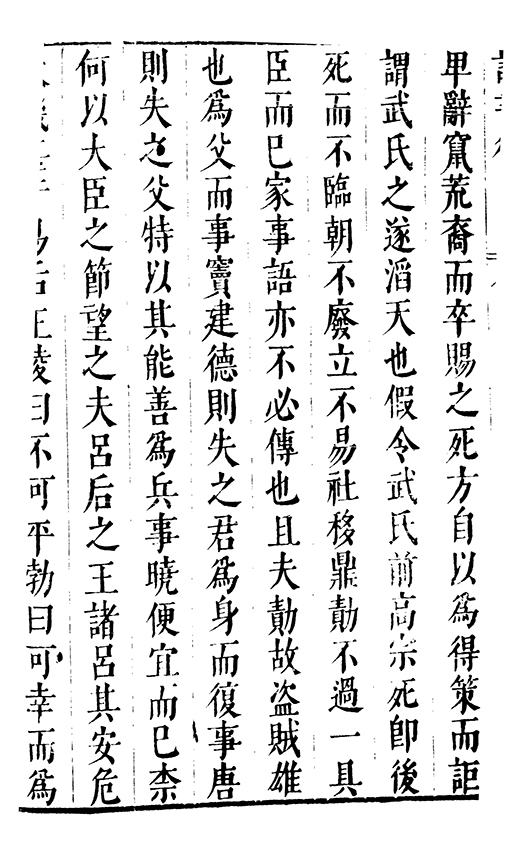 卑辭竄荒裔而卒賜之死方自以爲得策而詎
謂武氏之遂滔天也假令武氏前高宗死卽後
死而不臨朝不廢立不易社移鼎勣不過一具
臣而已家事語亦不必傳也且夫勣故盗賊雄
也爲父而事竇建德則失之君爲身而復事唐
則失之父特以其能善爲兵事曉便宜而已柰
何以大臣之節望之夫呂后之王諸呂其安危
幾后王陵曰不可平勃曰可幸而爲